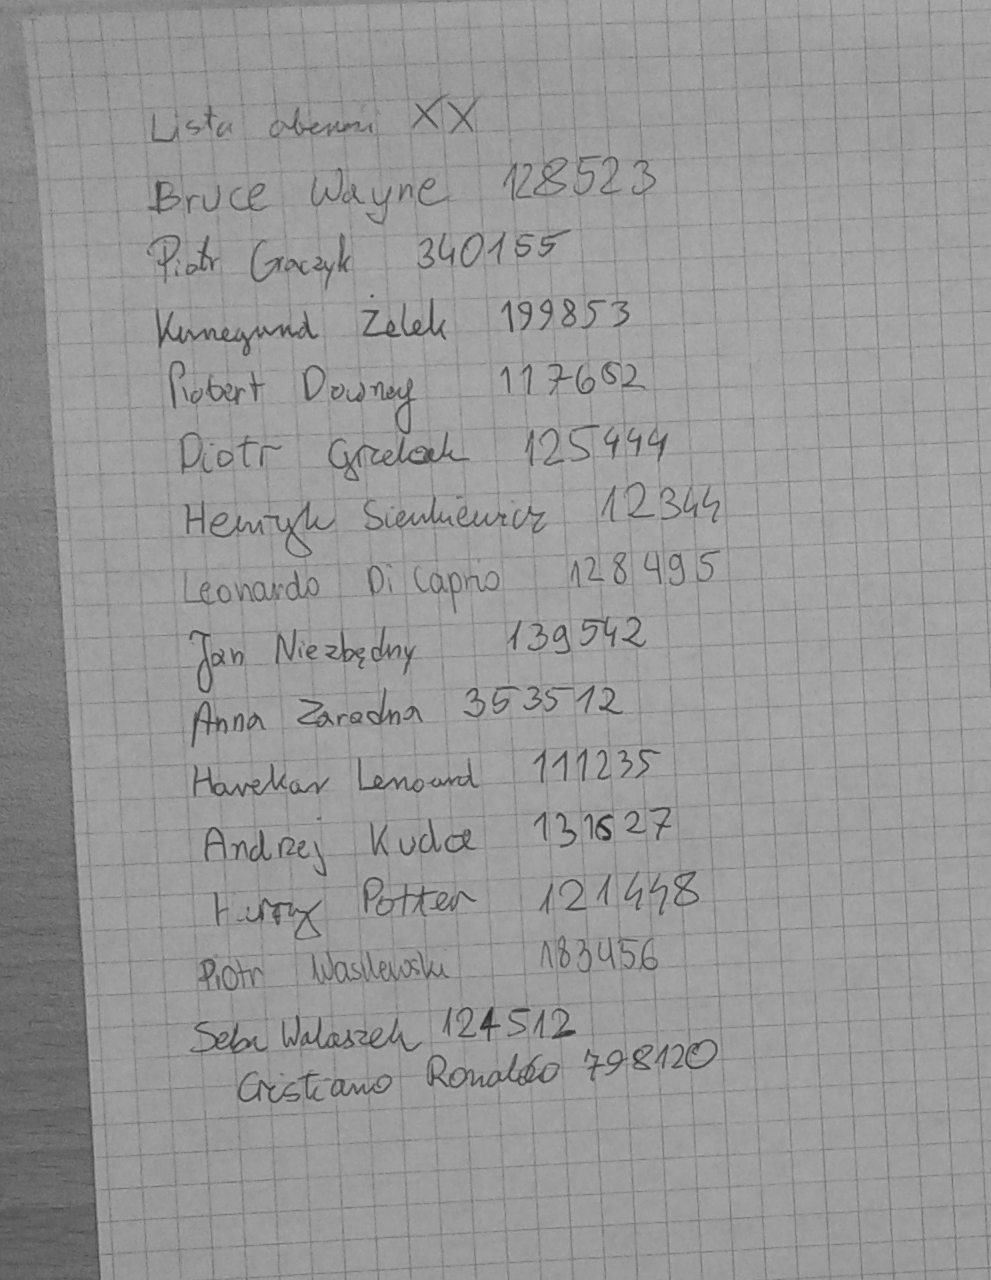 Lista obecności XX
Bruce Wayne 128523
Piotr Graczyk 340155
Kunegund Żelek 199853
Robert Downey 117652
Piotr Grzelak 125444
Henryk Sienkiewicz 12344
Leonardo Di Caprio 128495
Jan Niezbędny 139542
Anna Zaradna 353512
Havekar Lenoard 111235
Andrzej 131627
Potter 121448
Piotr Wasilewski 183456
Seba Walaszek 124512
Cristiano Ronaldo 798120